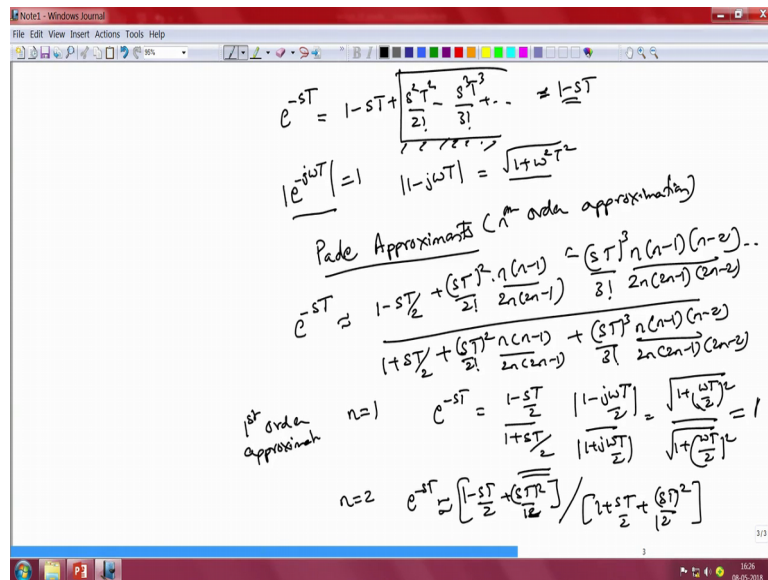 Note1 - Windows Journal
File Edit View Insert Actions Tools Help
96%
e^{-sT} = 1-sT+ s²T²/2! - s³T³/3! + .. ≈ 1-sT
|e^{-jωT}| = 1   |1-jωT| = √(1+ω²T²)
Pade Approximants (nth order approximation)
e^{-sT} ≈ 1-sT/2 + (sT)²/2! · n(n-1)/2n(2n-1) - (sT)³/3! n(n-1)(n-2)/2n(2n-1)(2n-2) ..
1+sT/2 + (sT)²/2! n(n-1)/2n(2n-1) + (sT)³/3! n(n-1)(n-2)/2n(2n-1)(2n-2)
1st order approximatn   n=1   e^{-sT} = (1-sT/2)/(1+sT/2)   |1-jωT/2|/|1+jωT/2| = √(1+(ωT/2)²)/√(1+(ωT/2)²) = 1
n=2   e^{-sT} ≈ [1-sT/2 + (sT)²/12] / [1+sT/2 + (sT)²/12]
3/3
3
16:26
08-05-2018